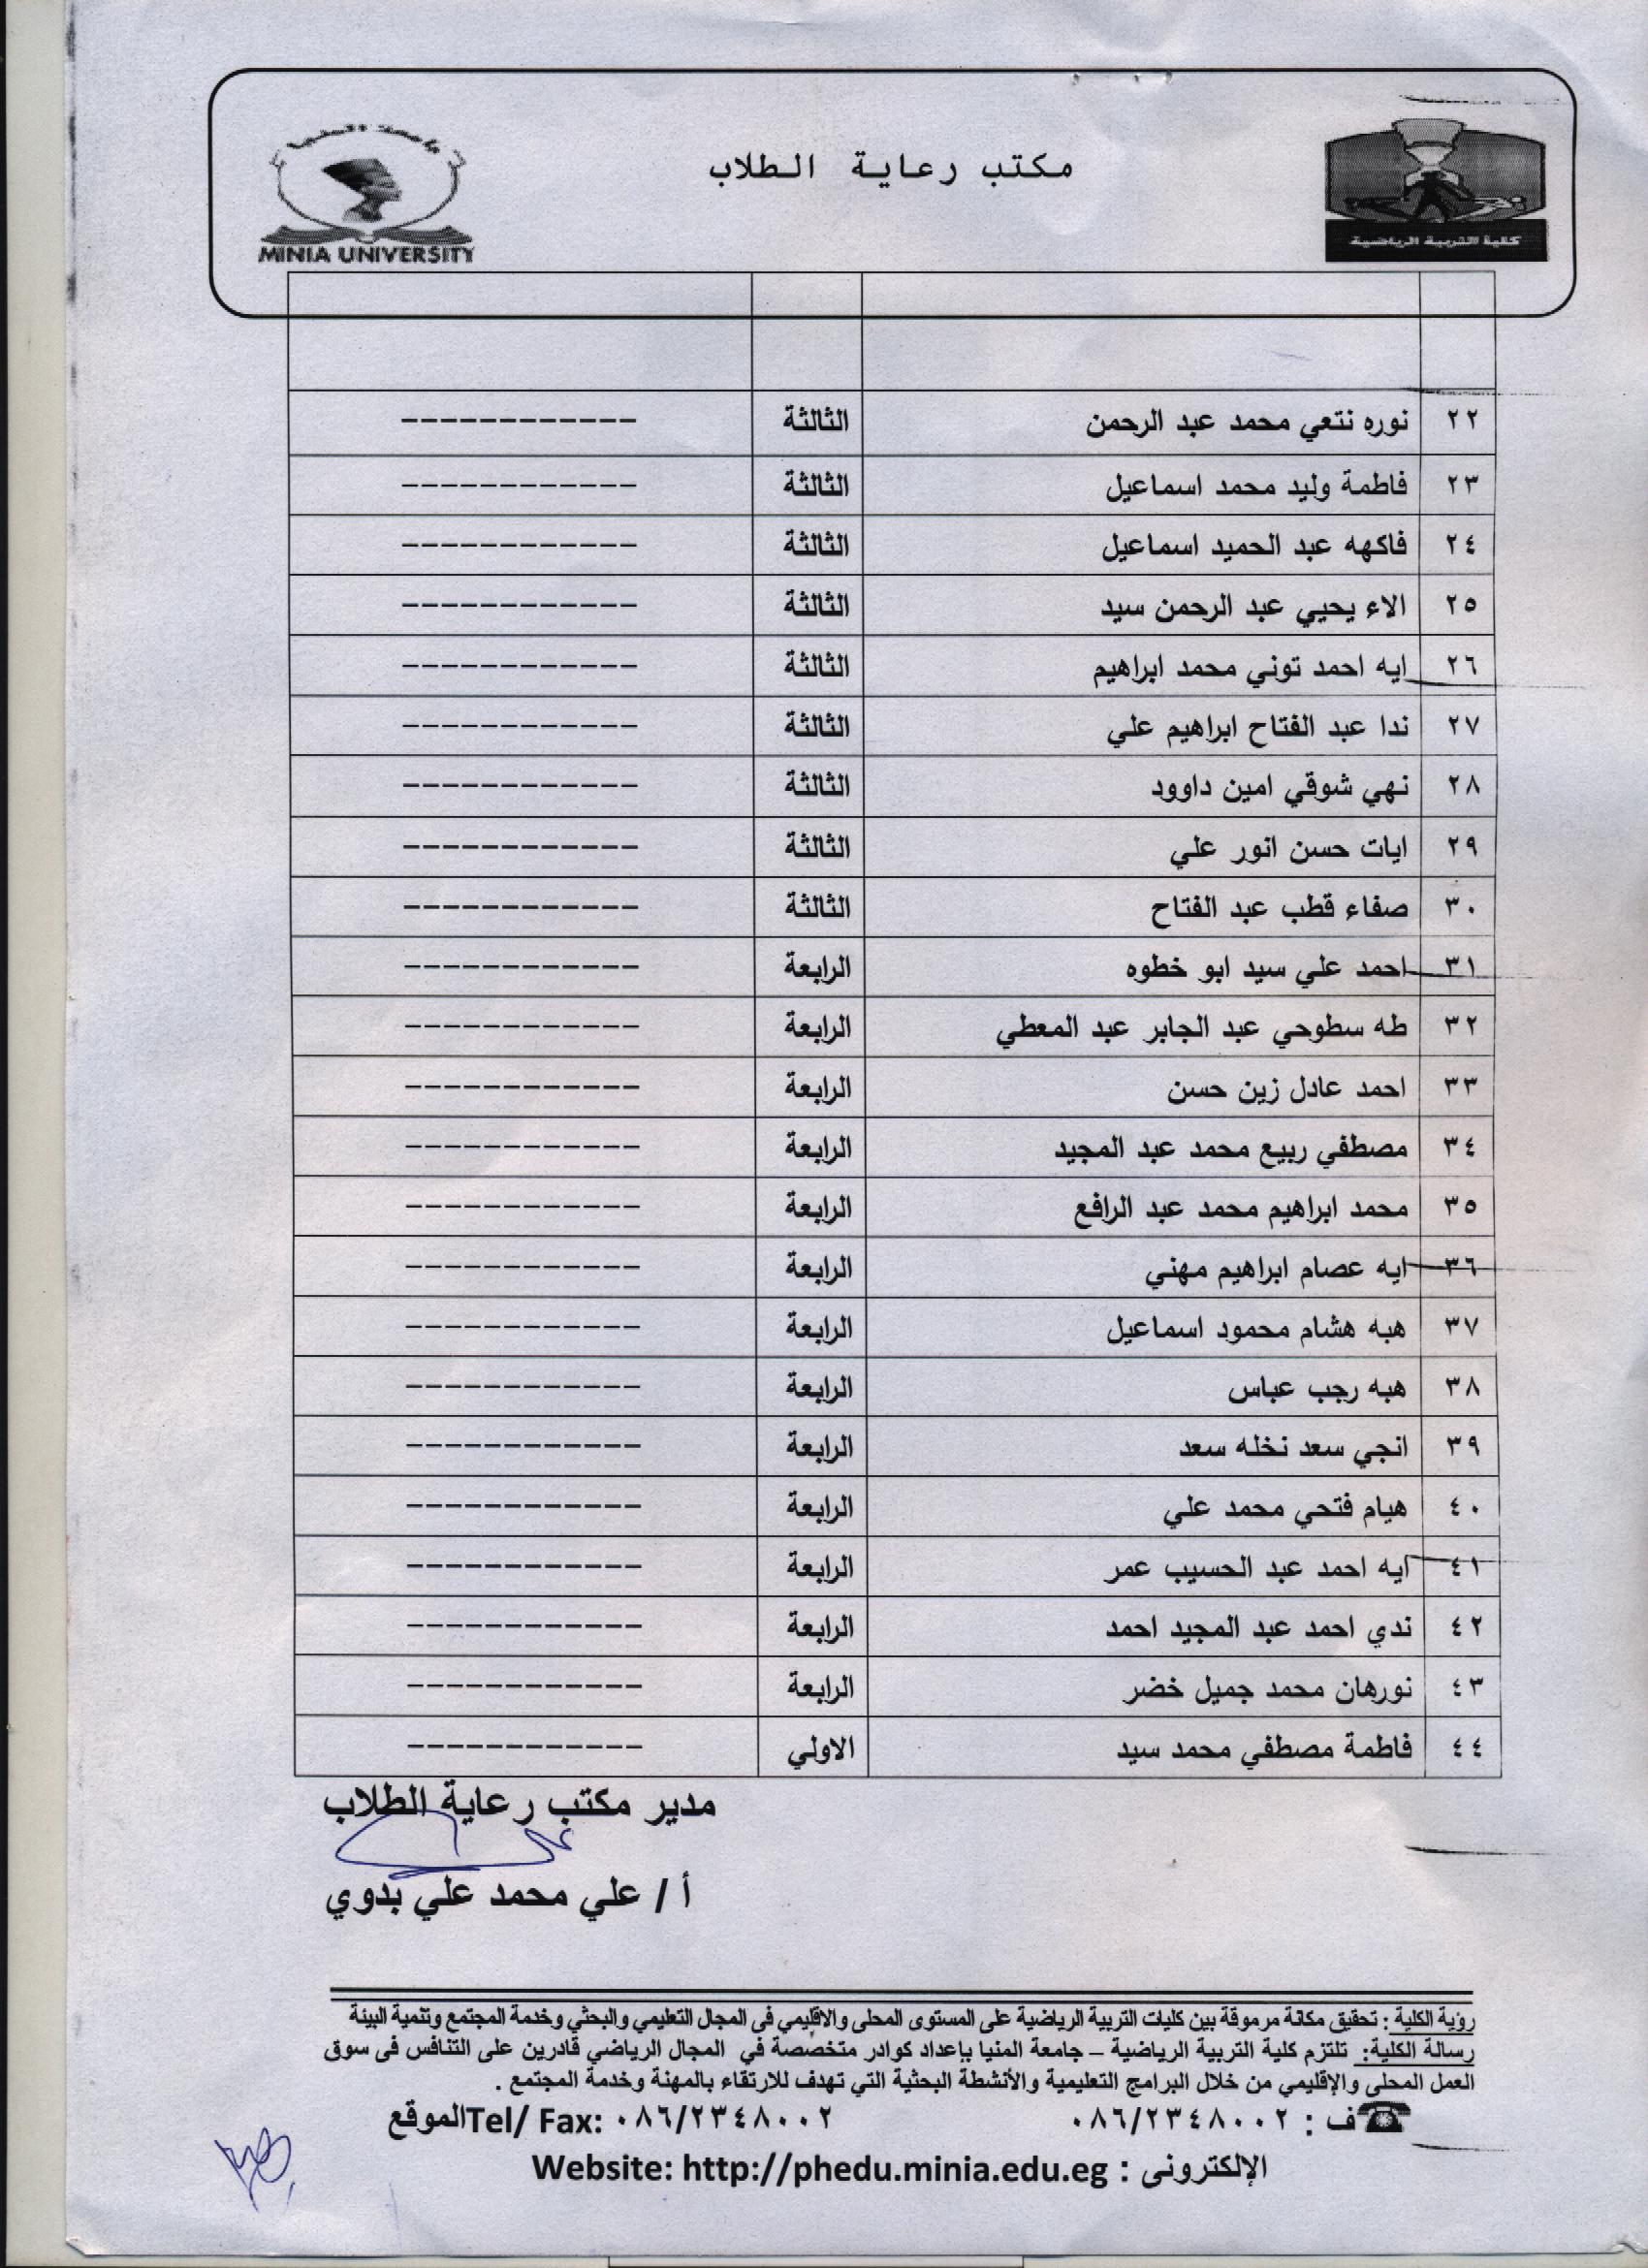 مكتب رعاية الطلاب
MINIA UNIVERSITY
كلية التربية الرياضية
٢٢ نوره نتعي محمد عبد الرحمن الثالثة ------------
٢٣ فاطمة وليد محمد اسماعيل الثالثة ------------
٢٤ فاكهه عبد الحميد اسماعيل الثالثة ------------
٢٥ الاء يحيي عبد الرحمن سيد الثالثة ------------
٢٦ ايه احمد توني محمد ابراهيم الثالثة ------------
٢٧ ندا عبد الفتاح ابراهيم علي الثالثة ------------
٢٨ نهي شوقي امين داوود الثالثة ------------
٢٩ ايات حسن انور علي الثالثة ------------
٣٠ صفاء قطب عبد الفتاح الثالثة ------------
٣١ احمد علي سيد ابو خطوه الرابعة ------------
٣٢ طه سطوحي عبد الجابر عبد المعطي الرابعة ------------
٣٣ احمد عادل زين حسن الرابعة ------------
٣٤ مصطفي ربيع محمد عبد المجيد الرابعة ------------
٣٥ محمد ابراهيم محمد عبد الرافع الرابعة ------------
٣٦ ايه عصام ابراهيم مهني الرابعة ------------
٣٧ هبه هشام محمود اسماعيل الرابعة ------------
٣٨ هبه رجب عباس الرابعة ------------
٣٩ انجي سعد نخله سعد الرابعة ------------
٤٠ هيام فتحي محمد علي الرابعة ------------
٤١ ايه احمد عبد الحسيب عمر الرابعة ------------
٤٢ ندي احمد عبد المجيد احمد الرابعة ------------
٤٣ نورهان محمد جميل خضر الرابعة ------------
٤٤ فاطمة مصطفي محمد سيد الاولي ------------
مدير مكتب رعاية الطلاب
أ / علي محمد علي بدوي
رؤية الكلية : تحقيق مكانة مرموقة بين كليات التربية الرياضية على المستوى المحلى والاقليمي فى المجال التعليمي والبحثي وخدمة المجتمع وتنمية البيئة
رسالة الكلية: تلتزم كلية التربية الرياضية – جامعة المنيا بإعداد كوادر متخصصة في المجال الرياضي قادرين على التنافس فى سوق
العمل المحلى والإقليمي من خلال البرامج التعليمية والأنشطة البحثية التي تهدف للارتقاء بالمهنة وخدمة المجتمع .
☎ف : ٠٨٦/٢٣٤٨٠٠٢ Tel/ Fax: ٠٨٦/٢٣٤٨٠٠٢الموقع
الإلكترونى : Website: http://phedu.minia.edu.eg